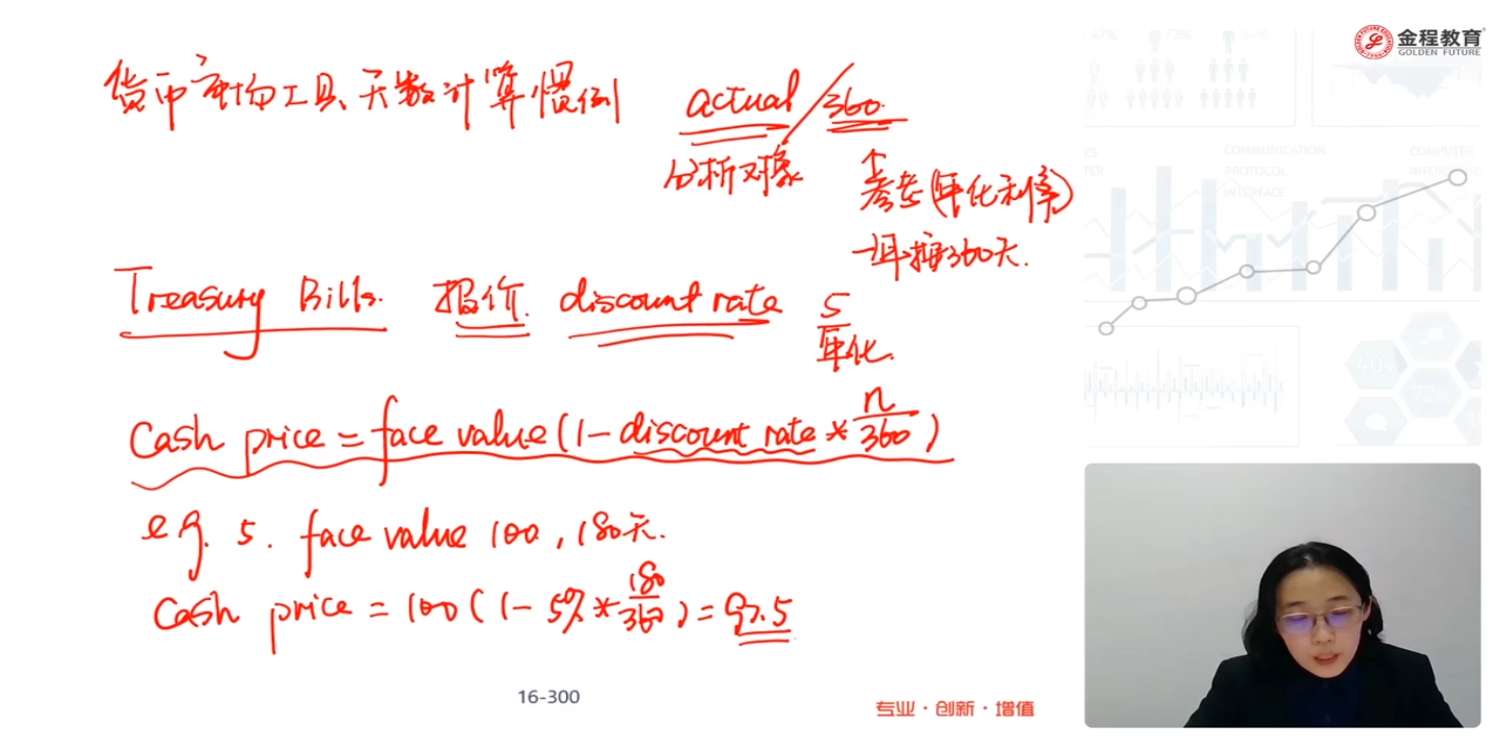 金程教育
GOLDEN FUTURE
货币市场工具、天数计算惯例 actual/360
分析对象 参考(年化利率)
一年按360天.
Treasury Bills. 报价. discount rate 5
年化.
Cash price = face value (1 - discount rate * n/360)
e.g. 5. face value 100, 180天.
Cash price = 100 (1 - 5% * 180/360) = 97.5
16-300
专业·创新·增值